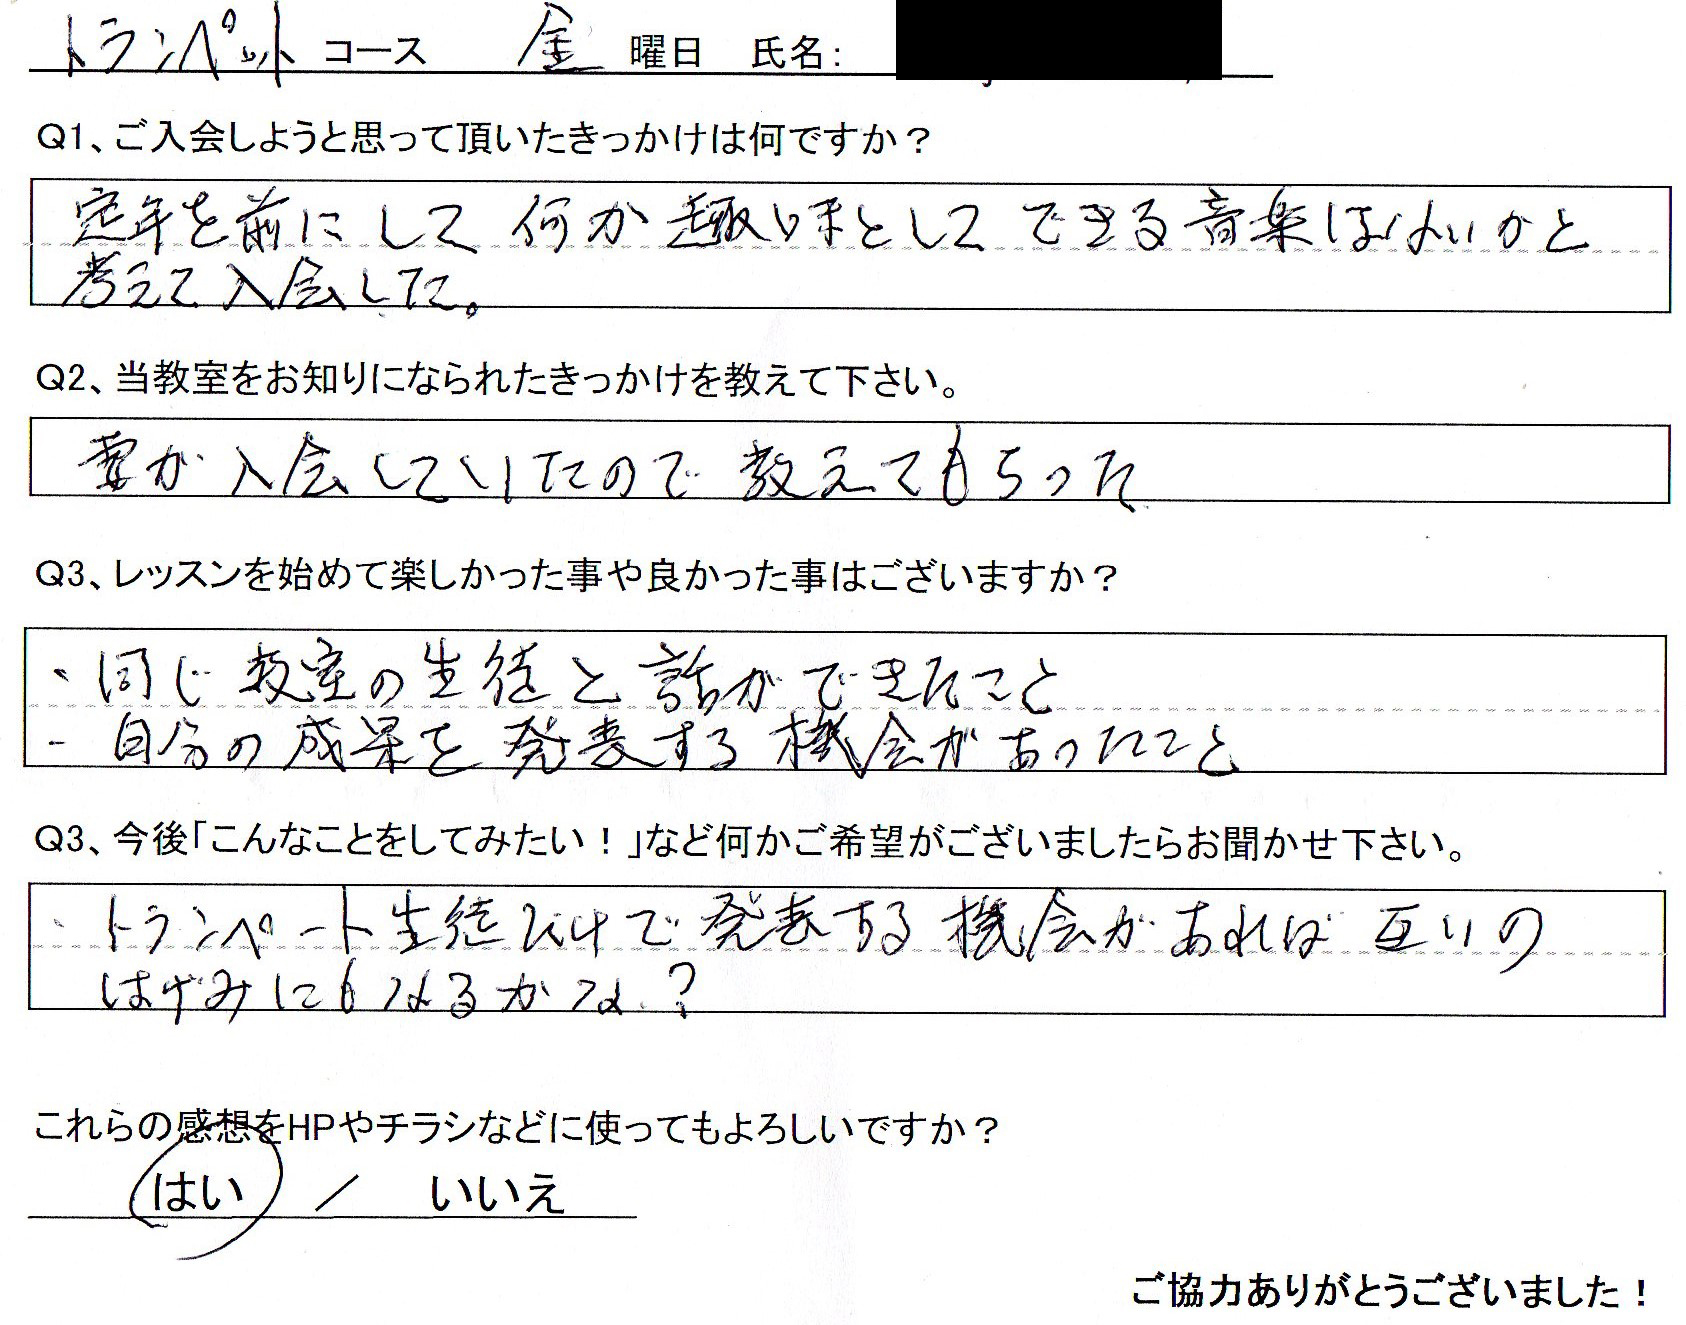 トランペット コース 金 曜日 氏名:
Q1、ご入会しようと思って頂いたきっかけは何ですか?
定年を前にして 何か趣味として できる音楽はないかと
考えて入会した。
Q2、当教室をお知りになられたきっかけを教えて下さい。
妻が入会していたので 教えてもらった
Q3、レッスンを始めて楽しかった事や良かった事はございますか?
・同じ教室の生徒と話ができたこと
- 自分の成果を発表する機会があったこと
Q3、今後「こんなことをしてみたい!」など何かご希望がございましたらお聞かせ下さい。
・トランペート生徒だけで発表する機会があれば 互いの
はげみにもなるかな?
これらの感想をHPやチラシなどに使ってもよろしいですか?
はい / いいえ
ご協力ありがとうございました!